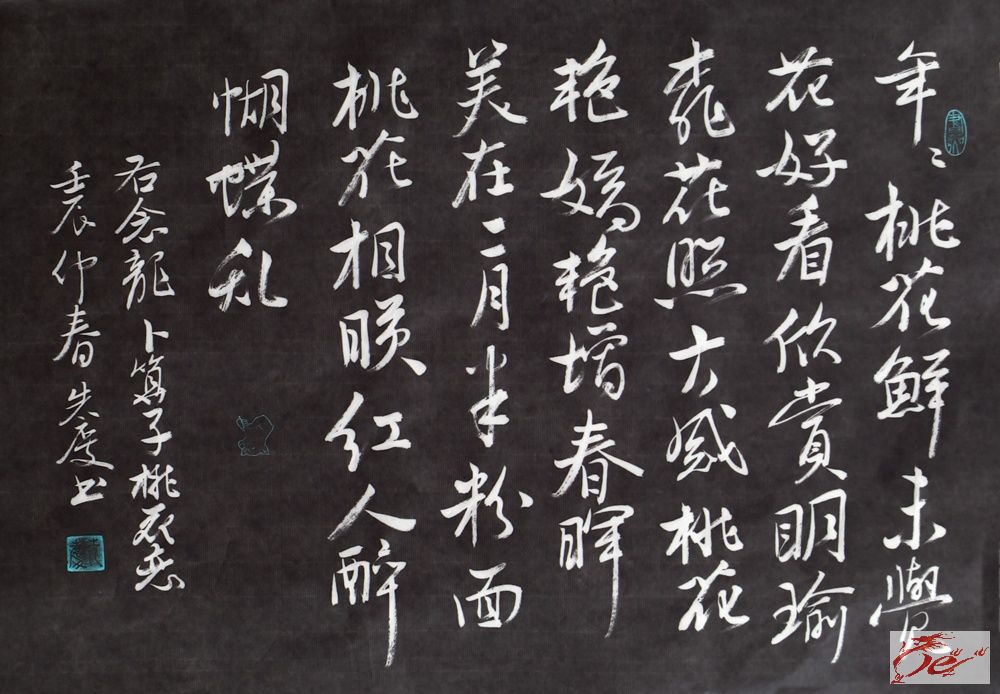 年〻桃花鮮未覺
花好看欣賞明瑜
花照大感桃花
艳嬌艳增春暉
美在二月半粉面
桃花相映红人醉
蝴蝶乱
右念龍卜算子桃花恋
壬辰仲春朱度书